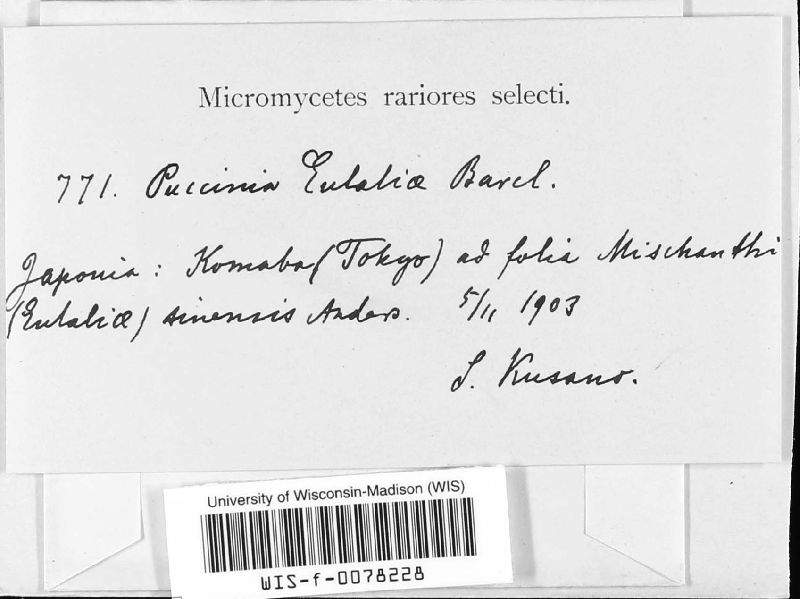 Micromycetes rariores selecti.
771. Puccinia Eulaliæ Barcl.
Japonia: Komaba (Tokyo) ad folia Mischanthi
(Eulaliæ) sinensis Anders. 5/11 1903
S. Kusano.
University of Wisconsin-Madison (WIS)
WIS-f-0078228